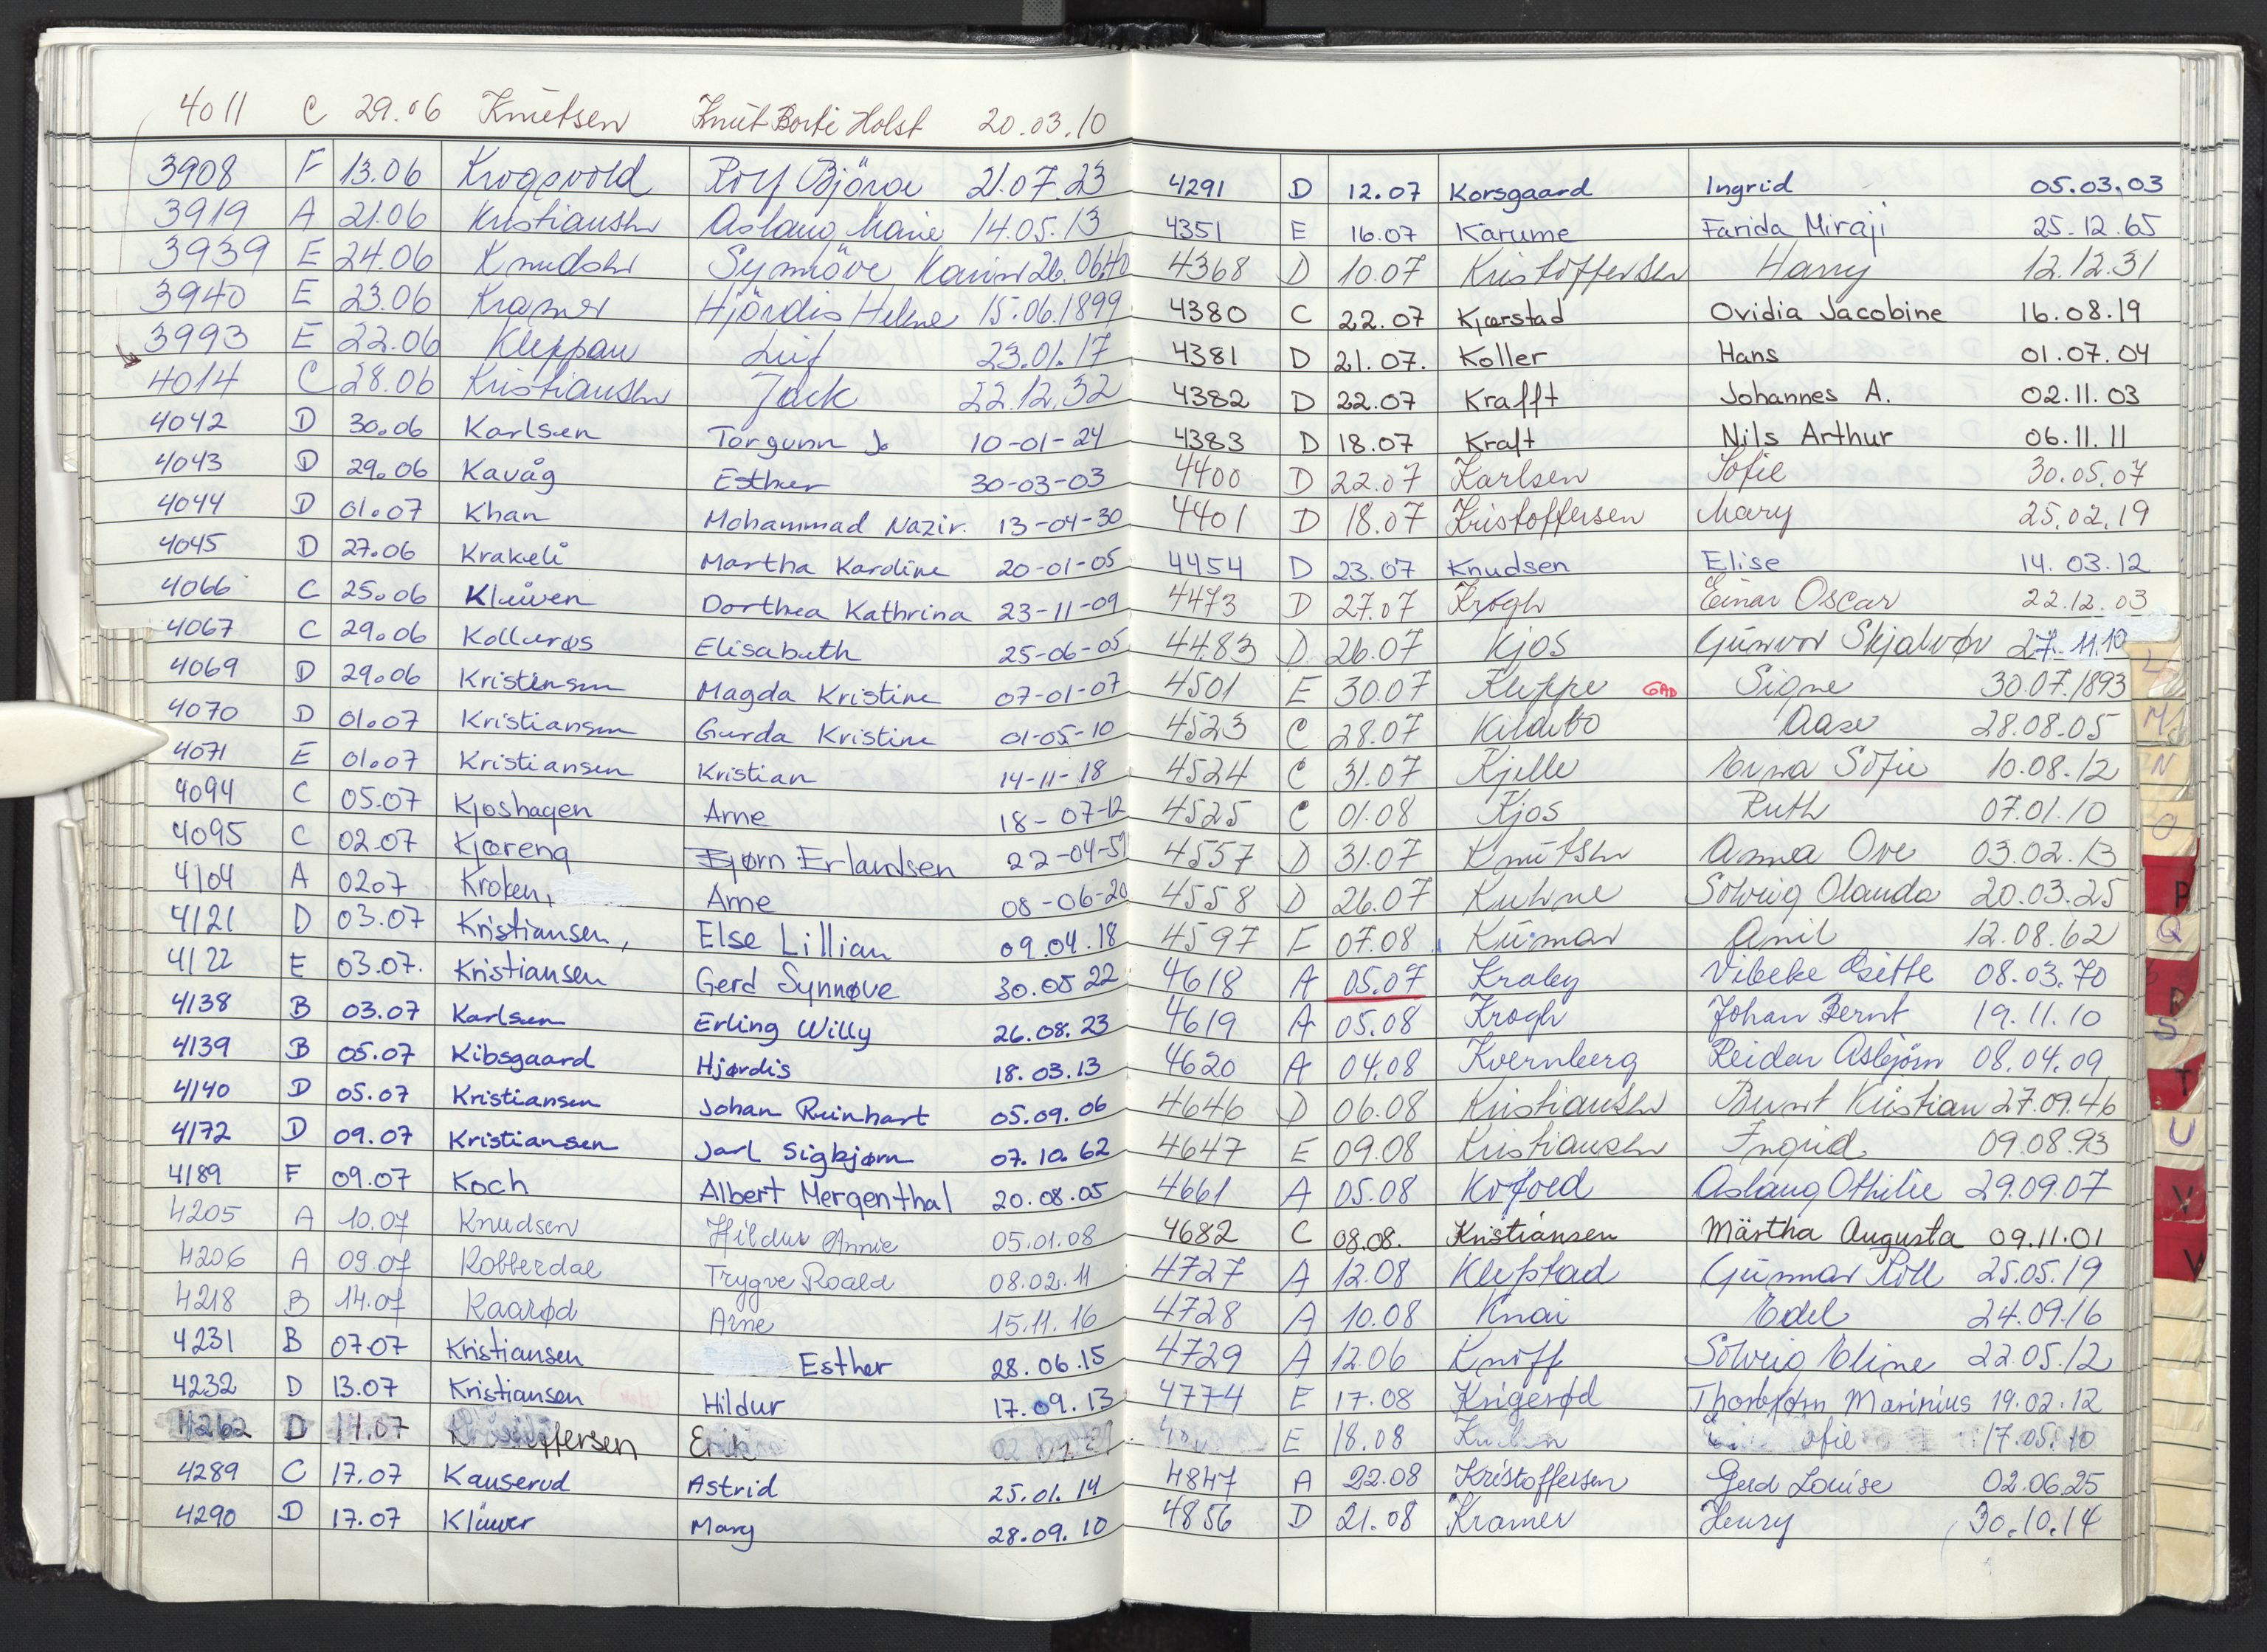 4011 C 29.06 Knutsen Knut Borti Holst 20.03.10
3908 F 13.06 Krogsvold Rolf Björn 21.07.23
3919 A 21.06 Kristiansen Aslaug Marie 14.05.13
3939 E 24.06 Knudsen Synnöve Karin 26.06.40
3940 E 23.06 Kramer Hjördis Helene 15.06.1899
3993 E 22.06 Kleppan Leif 23.01.17
4014 C 28.06 Kristiansen Jack 22.12.32
4042 D 30.06 Karlsen Torgunn J. 10-01-24
4043 D 29.06 Kavåg Esther 30-03-03
4044 D 01.07 Khan Mohammad Nazir. 13-04-30
4045 D 27.06 Krakeli Martha Karoline 20-01-05
4066 C 25.06 Klüwen Dorthea Kathrina 23-11-09
4067 C 29.06 Kollerøs Elisabeth 25-06-05
4069 D 29.06 Kristensen Magda Kristine 07-01-07
4070 D 01.07 Kristiansen Gerda Kristine 01-05-10
4071 E 01.07 Kristiansen Kristian 14-11-18
4094 C 05.07 Kjoshagen Arne 18-07-12
4095 C 02.07 Kjøreng Bjørn Erlandsen 22-04-51
4104 A 0207 Kroken, Arne 08-06-20
4121 D 03.07 Kristiansen, Else Lillian 09.04.18
4122 E 03.07. Kristiansen Gerd Synnøve 30.05 22
4138 B 03.07 Karlsen Erling Willy 26.08.23
4139 B 05.07 Kibsgaard Hjørdis 18.03.13
4140 D 05.07 Kristiansen Johan Reinhart 05.09.06
4172 D 09.07 Kristiansen Jarl Sigbjørn 07.10.62
4189 F 09.07 Koch Albert Mergenthal 20.08.05
4205 A 10.07 Knudsen Hildur Annie 05.01.08
4206 A 09.07 Kobberdal Trygve Roald 08.02.11
4218 B 14.07 Kaarød Arne 15.11.16
4231 B 07.07 Kristiansen Esther 28.06.15
4232 D 13.07 Kristiansen Hildur 17.09.13
4262 D 14.07 Kristoffersen Erik
4289 C 17.07 Kauserud Astrid 25.01.14
4290 D 17.07 Klüwer Mary 28.09.10
4291 D 12.07 Korsgaard Ingrid 05.03.03
4351 E 16.07 Karume Farida Miraji 25.12.65
4368 D 10.07 Kristoffersen Harry 12.12.31
4380 C 22.07 Kjærstad Ovidia Jacobine 16.08.19
4381 D 21.07. Koller Hans 01.07.04
4382 D 22.07 Krafft Johannes A. 02.11.03
4383 D 18.07 Kraft Nils Arthur 06.11.11
4400 D 22.07 Karlsen Sofie 30.05.07
4401 D 18.07 Kristoffersen Mary 25.02.19
4454 D 23.07 Knudsen Elise 14.03.12
4473 D 27.07 Krogh Einar Oscar 22.12.03
4483 D 26.07 Kjos Gunvor Skjalvør 27.11.10
4501 E 30.07 Kleppe GAD Signe 30.07.1893
4523 C 28.07 Kildebo Aase 28.08.05
4524 C 31.07 Kjelle Erna Sofie 10.08.12
4525 C 01.08 Kjos Ruth 07.01.10
4557 D 31.07 Knutsen Anna Ove 03.02.13
4558 D 26.07 Kuhne Solveig Olanda 20.03.25
4597 F 07.08 Kumar Anil 12.08.62
4618 A 05.07 Kraby Vibeke Gsitte 08.03.70
4619 A 05.08 Krogh Johan Bernt 19.11.10
4620 A 04.08 Kvernberg Reidar Asbjörn 08.04.09
4646 D 06.08 Kristiansen Bernt Kristian 27.09.46
4647 E 09.08 Kristiansen Ingrid 09.08.93
4661 A 05.08 Kofoed Aslaug Othilie 29.09.07
4682 C 08.08. Kristiansen Märtha Augusta 09.11.01
4727 A 12.08 Klepstad Gunnar Roll 25.05.19
4728 A 10.08 Knai Edel 24.09.16
4729 A 12.06 Knoff Solveig Eline 22.05.12
4774 E 17.08 Krigerød Thorbjørn Marinius 19.02.12
E 18.08 ofie 17.05.10
4847 A 22.08 Kristoffersen Gerd Louise 02.06.25
4856 D 21.08 Kramer Henry 30.10.14
L
M
N
O
P
Q
R
S
T
U
V